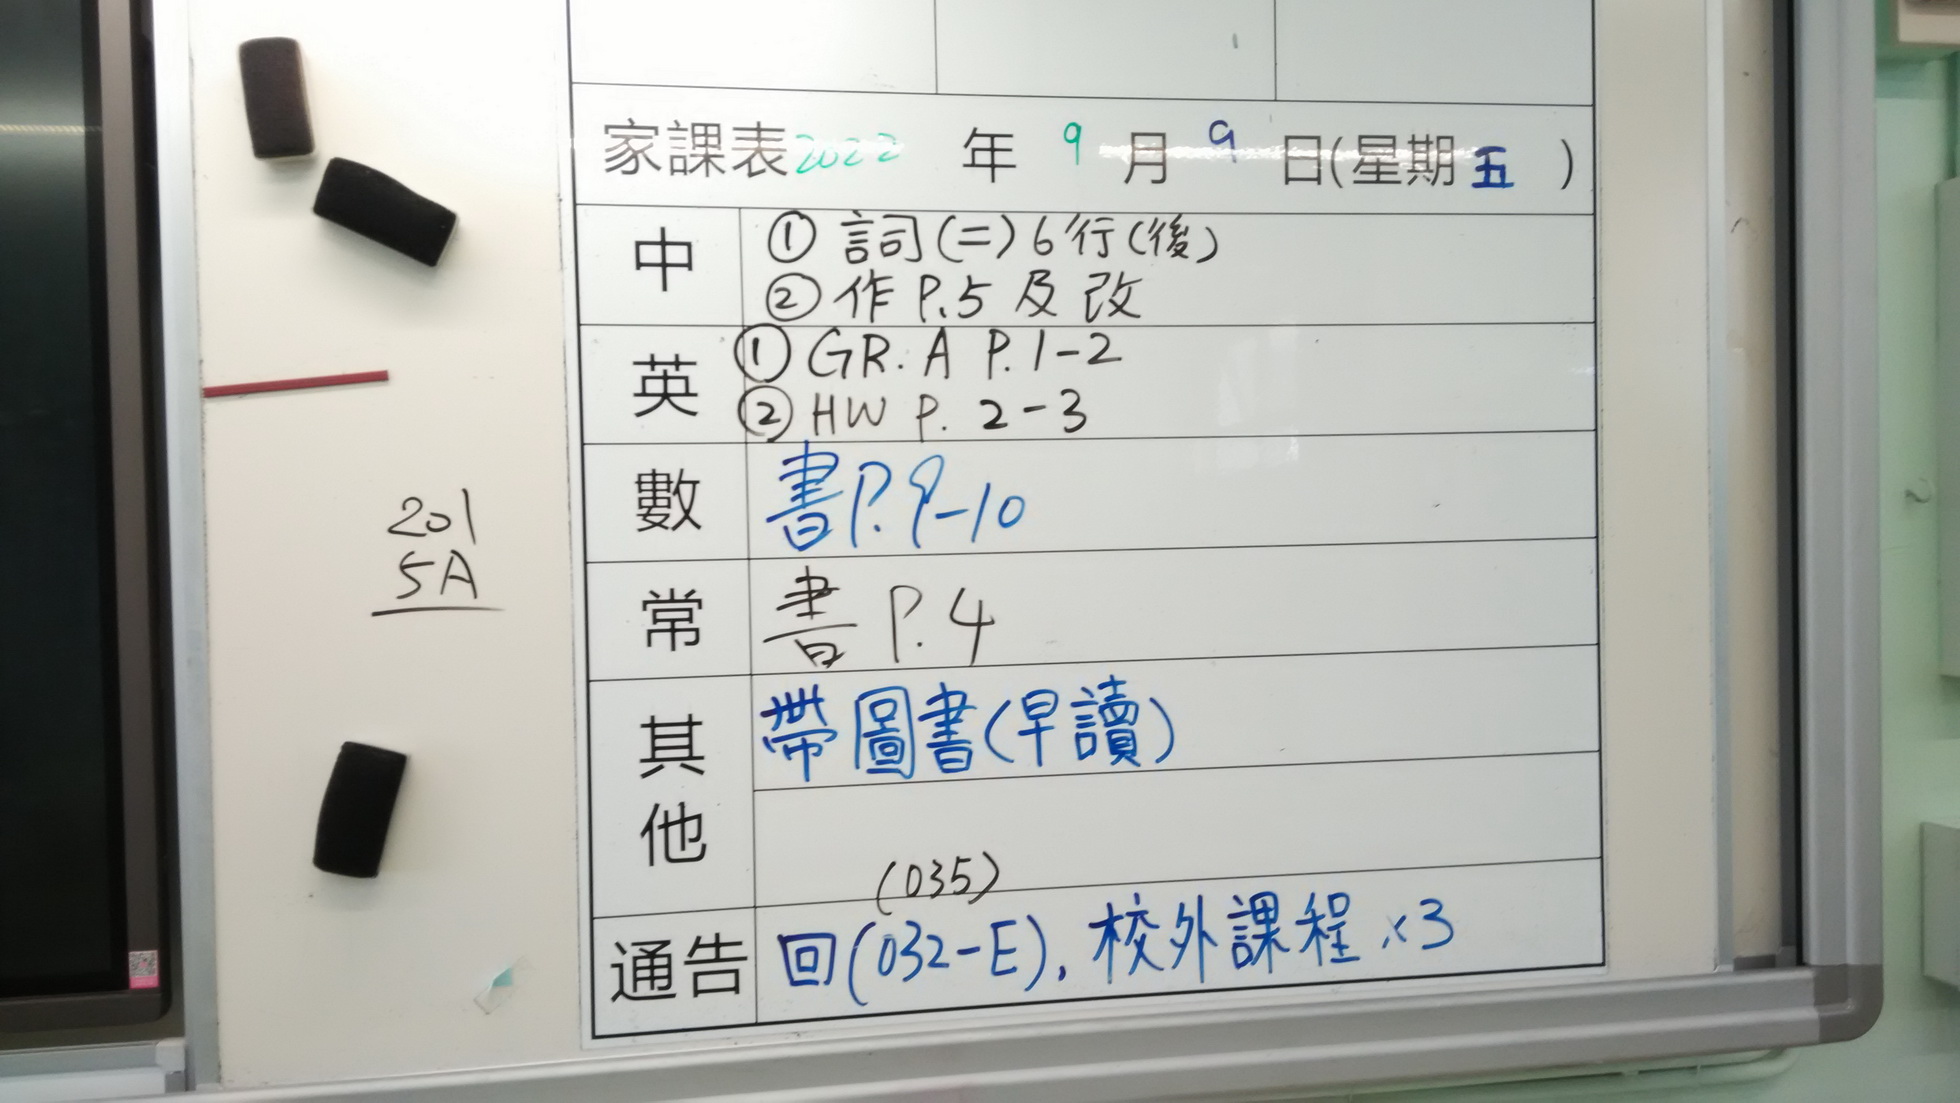 家課表2022 年 9 月 9 日(星期五)
中 ① 詞(二)6行(後)
② 作 P.5 及 改
英 ① GR. A P.1-2
② HW P. 2-3
數 書P.9-10
常 書 P.4
其他 帶圖書(早讀)
(035)
通告 回(032-E), 校外課程 x3
201
5A